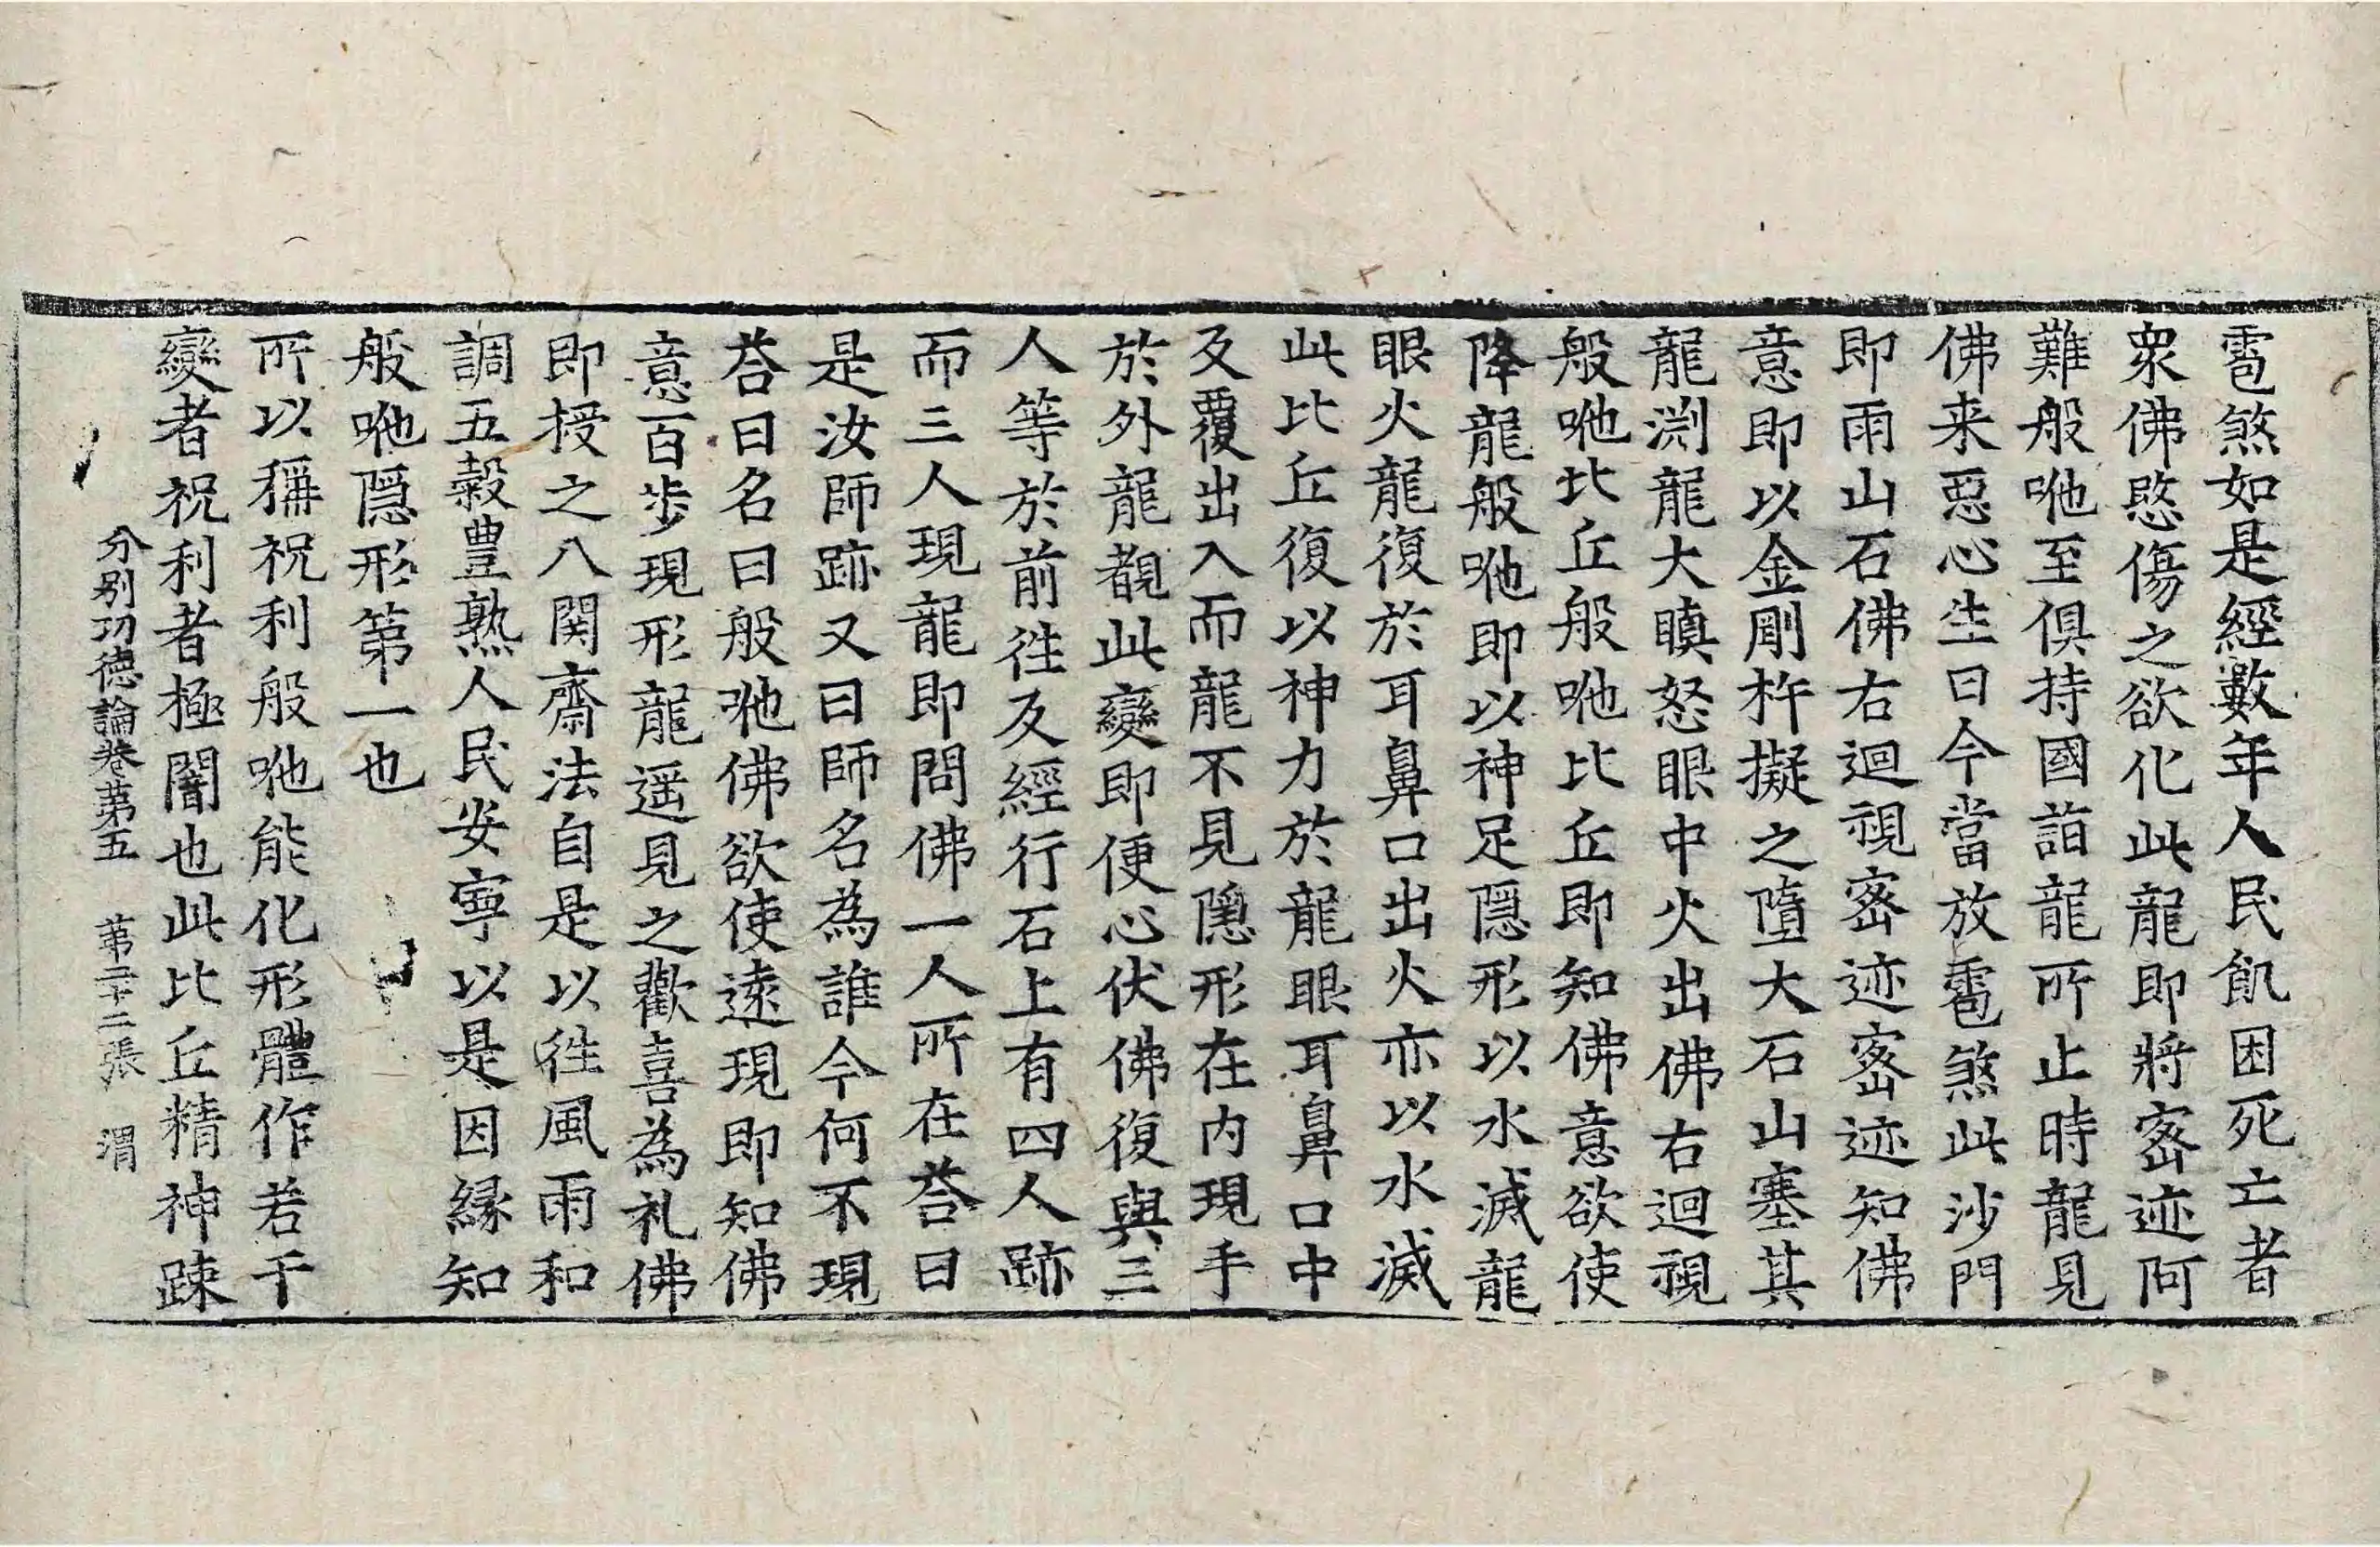 雹煞如是經數年人民飢困死亡者
衆佛愍傷之欲化此龍即將密迹阿
難般咃至俱持國詣龍所止時龍見
佛来惡心生曰今當放雹煞此沙門
即雨山石佛右迴視密迹密迹知佛
意即以金剛杵擬之墮大石山塞其
龍渊龍大瞋怒眼中火出佛右迴視
般咃比丘般咃比丘即知佛意欲使
降龍般咃即以神足隱形以水滅龍
眼火龍復於耳鼻口出火亦以水滅
此比丘復以神力於龍眼耳鼻口中
反覆出入而龍不見隱形在内現手
於外龍覩此變即便心伏佛復與三
人等於前徃及經行石上有四人跡
而三人現龍即問佛一人所在荅曰
是汝師跡又曰師名為誰今何不現
荅曰名曰般咃佛欲使遠現即知佛
意百歩現形龍遥見之歡喜為礼佛
即授之八関齋法自是以徃風雨和
調五穀豊熟人民安寧以是因縁知
般咃隱形第一也
所以稱祝利般咃能化形體作若干
變者祝利者極闇也此比丘精神踈
分别功德論卷第五　第二十二張　渭